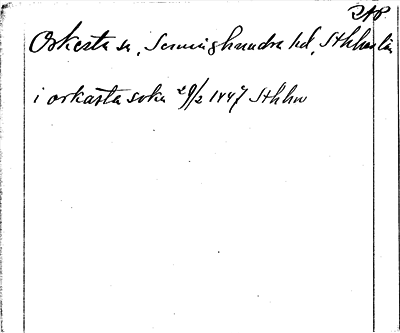 218
Orkesta sn, Seminghundra hd, Sthlms län
i orkasta sokn 29/2 1447 Sthlm